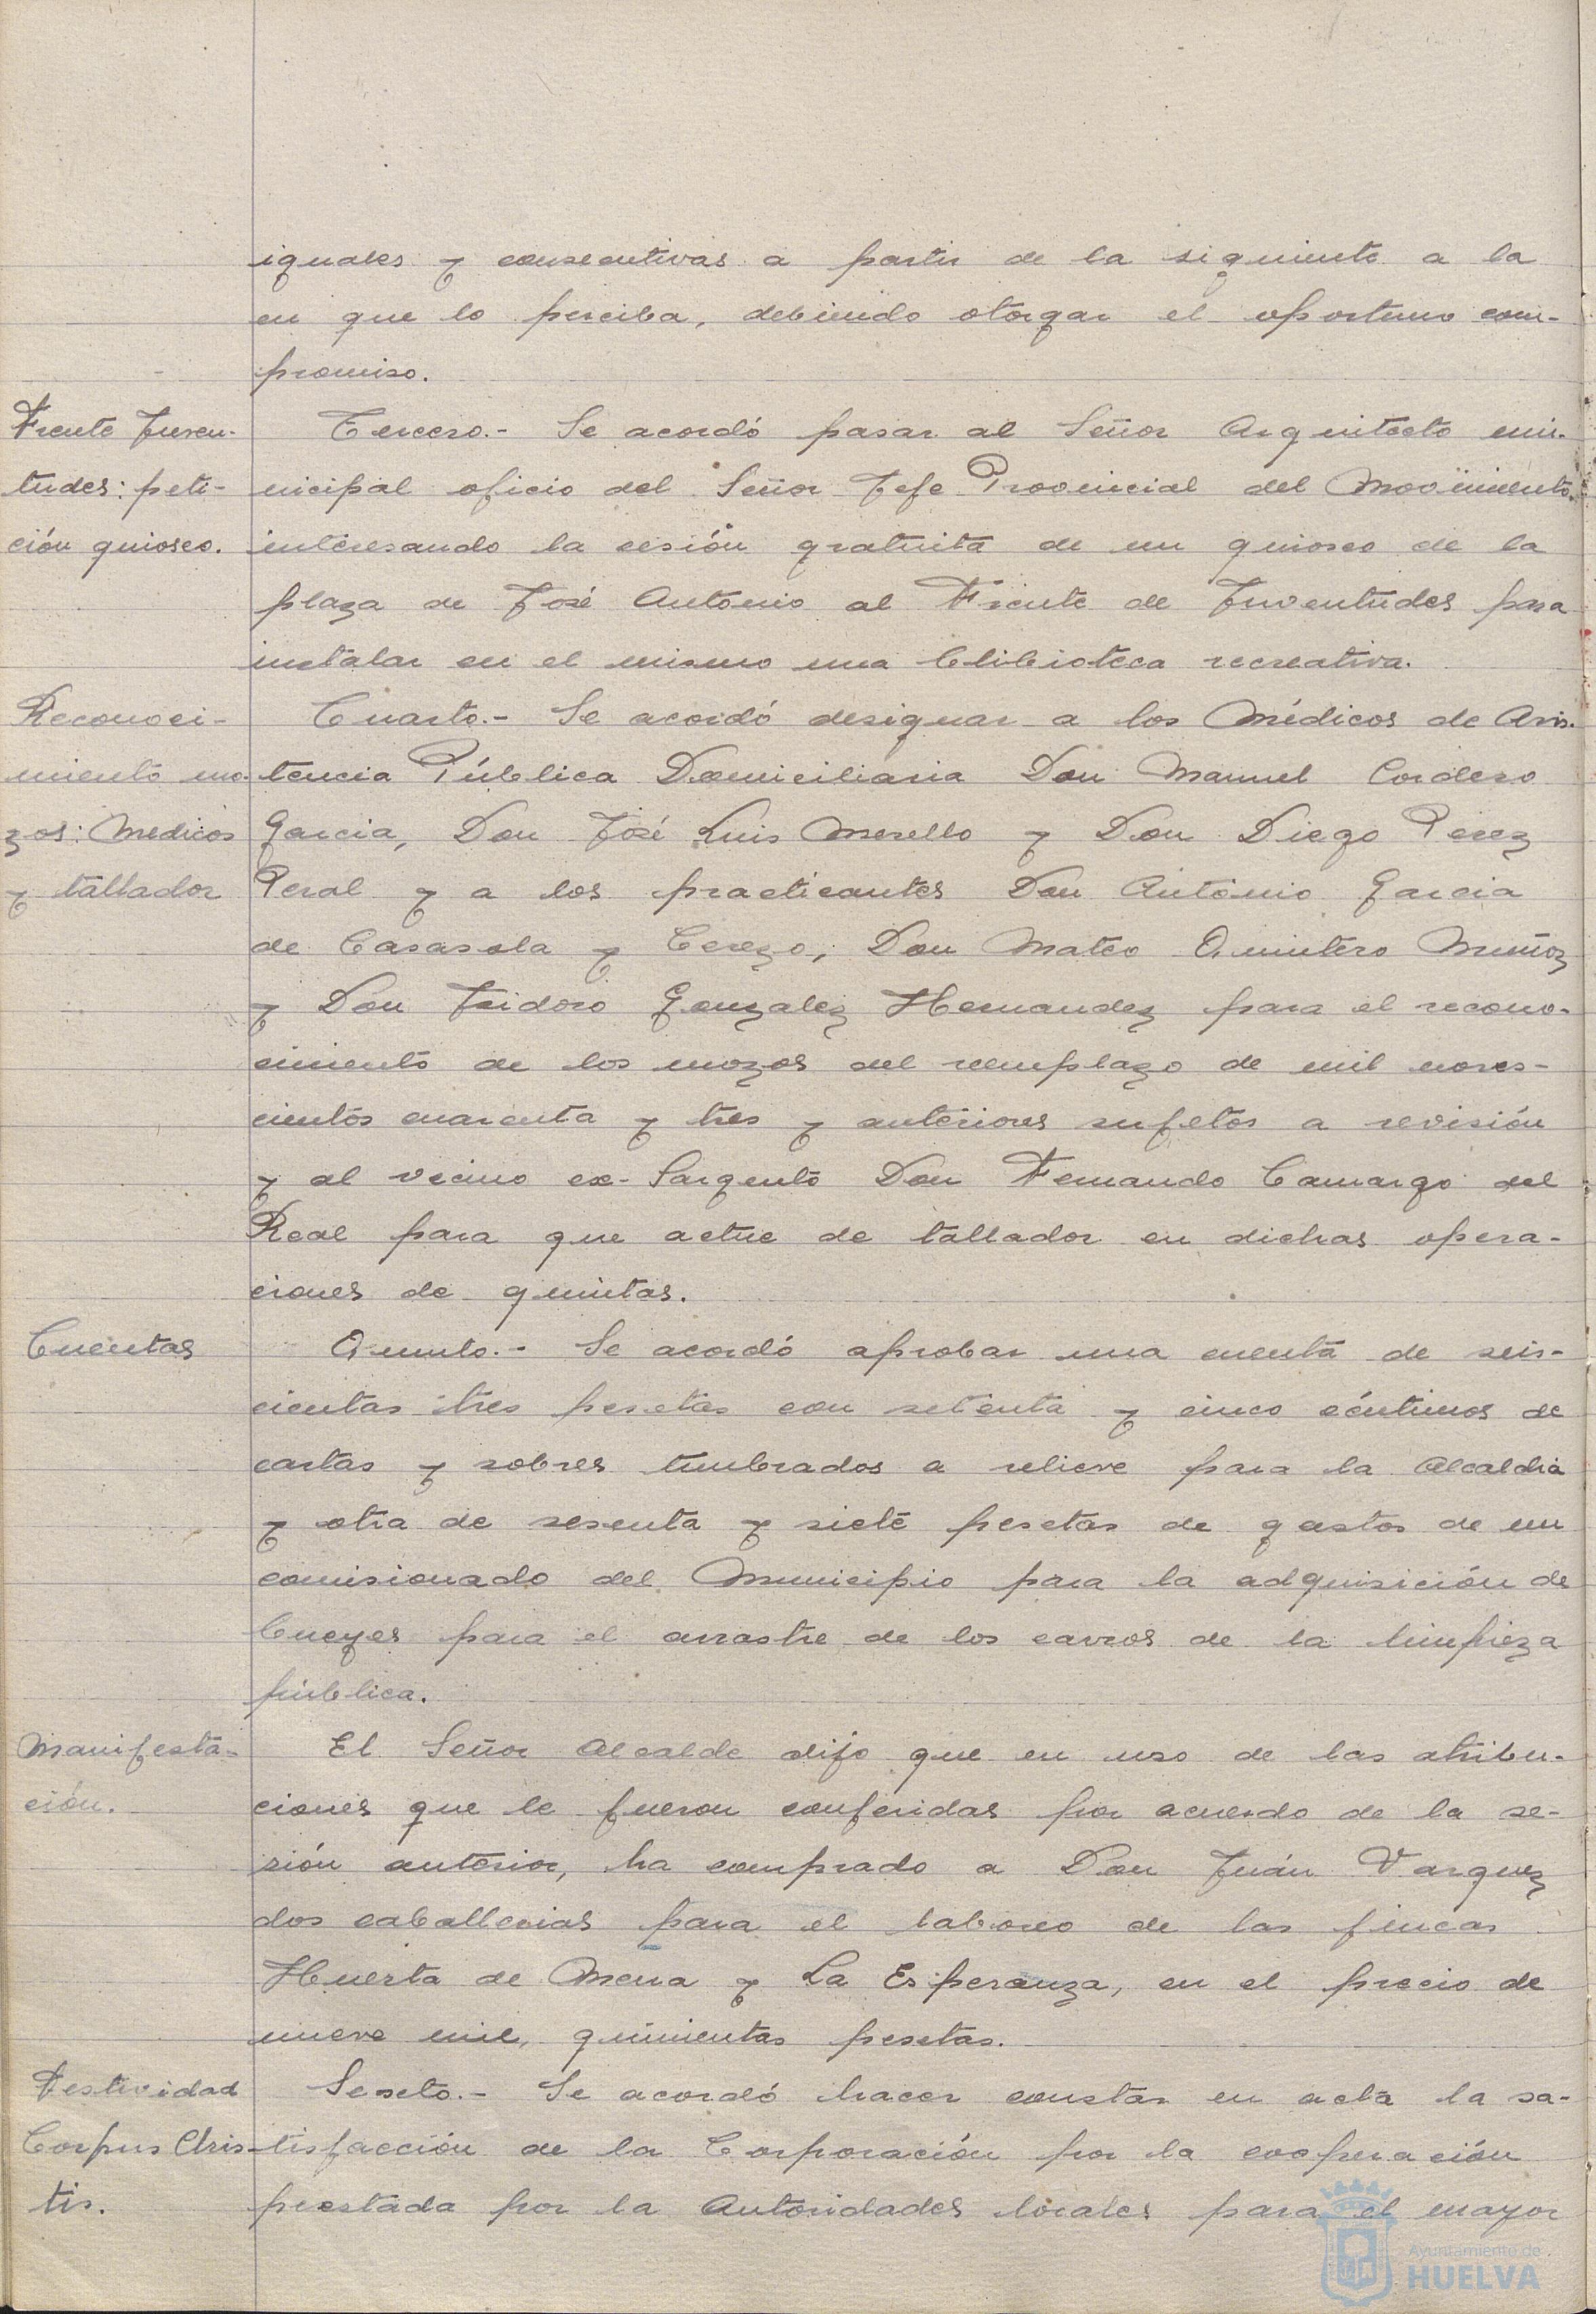 iguales y consecutivas a partir de la siguiente a la
en que lo perciba, debiendo otorgar el oportuno com-
promiso.
Frente Juven-
tudes: peti-
ción quiosco.
Tercero.- Se acordó pasar al Señor Arquitecto mu-
nicipal oficio del Señor Jefe Provincial del Movimiento
interesando la cesión gratuita de un quiosco de la
plaza de José Antonio al Frente de Juventudes para
instalar en el mismo una biblioteca recreativa.
Reconoci-
miento mo-
zos: Medicos
y tallador
Cuarto.- Se acordó designar a los Médicos de Asis-
tencia Pública Domiciliaria Don Manuel Cordero
Garcia, Don José Luis Morello y Don Diego Perez
Peral y a los practicantes Don Antonio Garcia
de Casasola y Cerezo, Don Mateo Quintero Muñoz
y Don Isidoro Gonzalez Hernandez para el recono-
cimiento de los mozos del reemplazo de mil noves-
cientos cuarenta y tres y anteriores sujetos a revisión
y al vecino ex-Sargento Don Fernando Camargo del
Real para que actue de tallador en dichas opera-
ciones de quintas.
Cuentas
Quinto.- Se acordó aprobar una cuenta de seis-
cientas tres pesetas con setenta y cinco céntimos de
cartas y sobres timbrados a relieve para la Alcaldia
y otra de sesenta y siete pesetas de gastos de un
comisionado del Municipio para la adquisición de
bueyes para el arrastre de los carros de la limpieza
pública.
Manifesta-
ción.
El Señor Alcalde dijo que en uso de las atribu-
ciones que le fueron conferidas por acuerdo de la se-
sión anterior, ha comprado a Don Juán Varquez
dos caballerias para el laboreo de las fincas
Huerta de Mena y La Esperanza, en el precio de
nueve mil, quinientas pesetas.
Festividad
Corpus Chris-
tis.
Sexto.- Se acordó hacer constar en acta la sa-
tisfacción de la Corporación por la cooperación
prestada por la Autoridades locales para el mayor
Ayuntamiento de
HUELVA